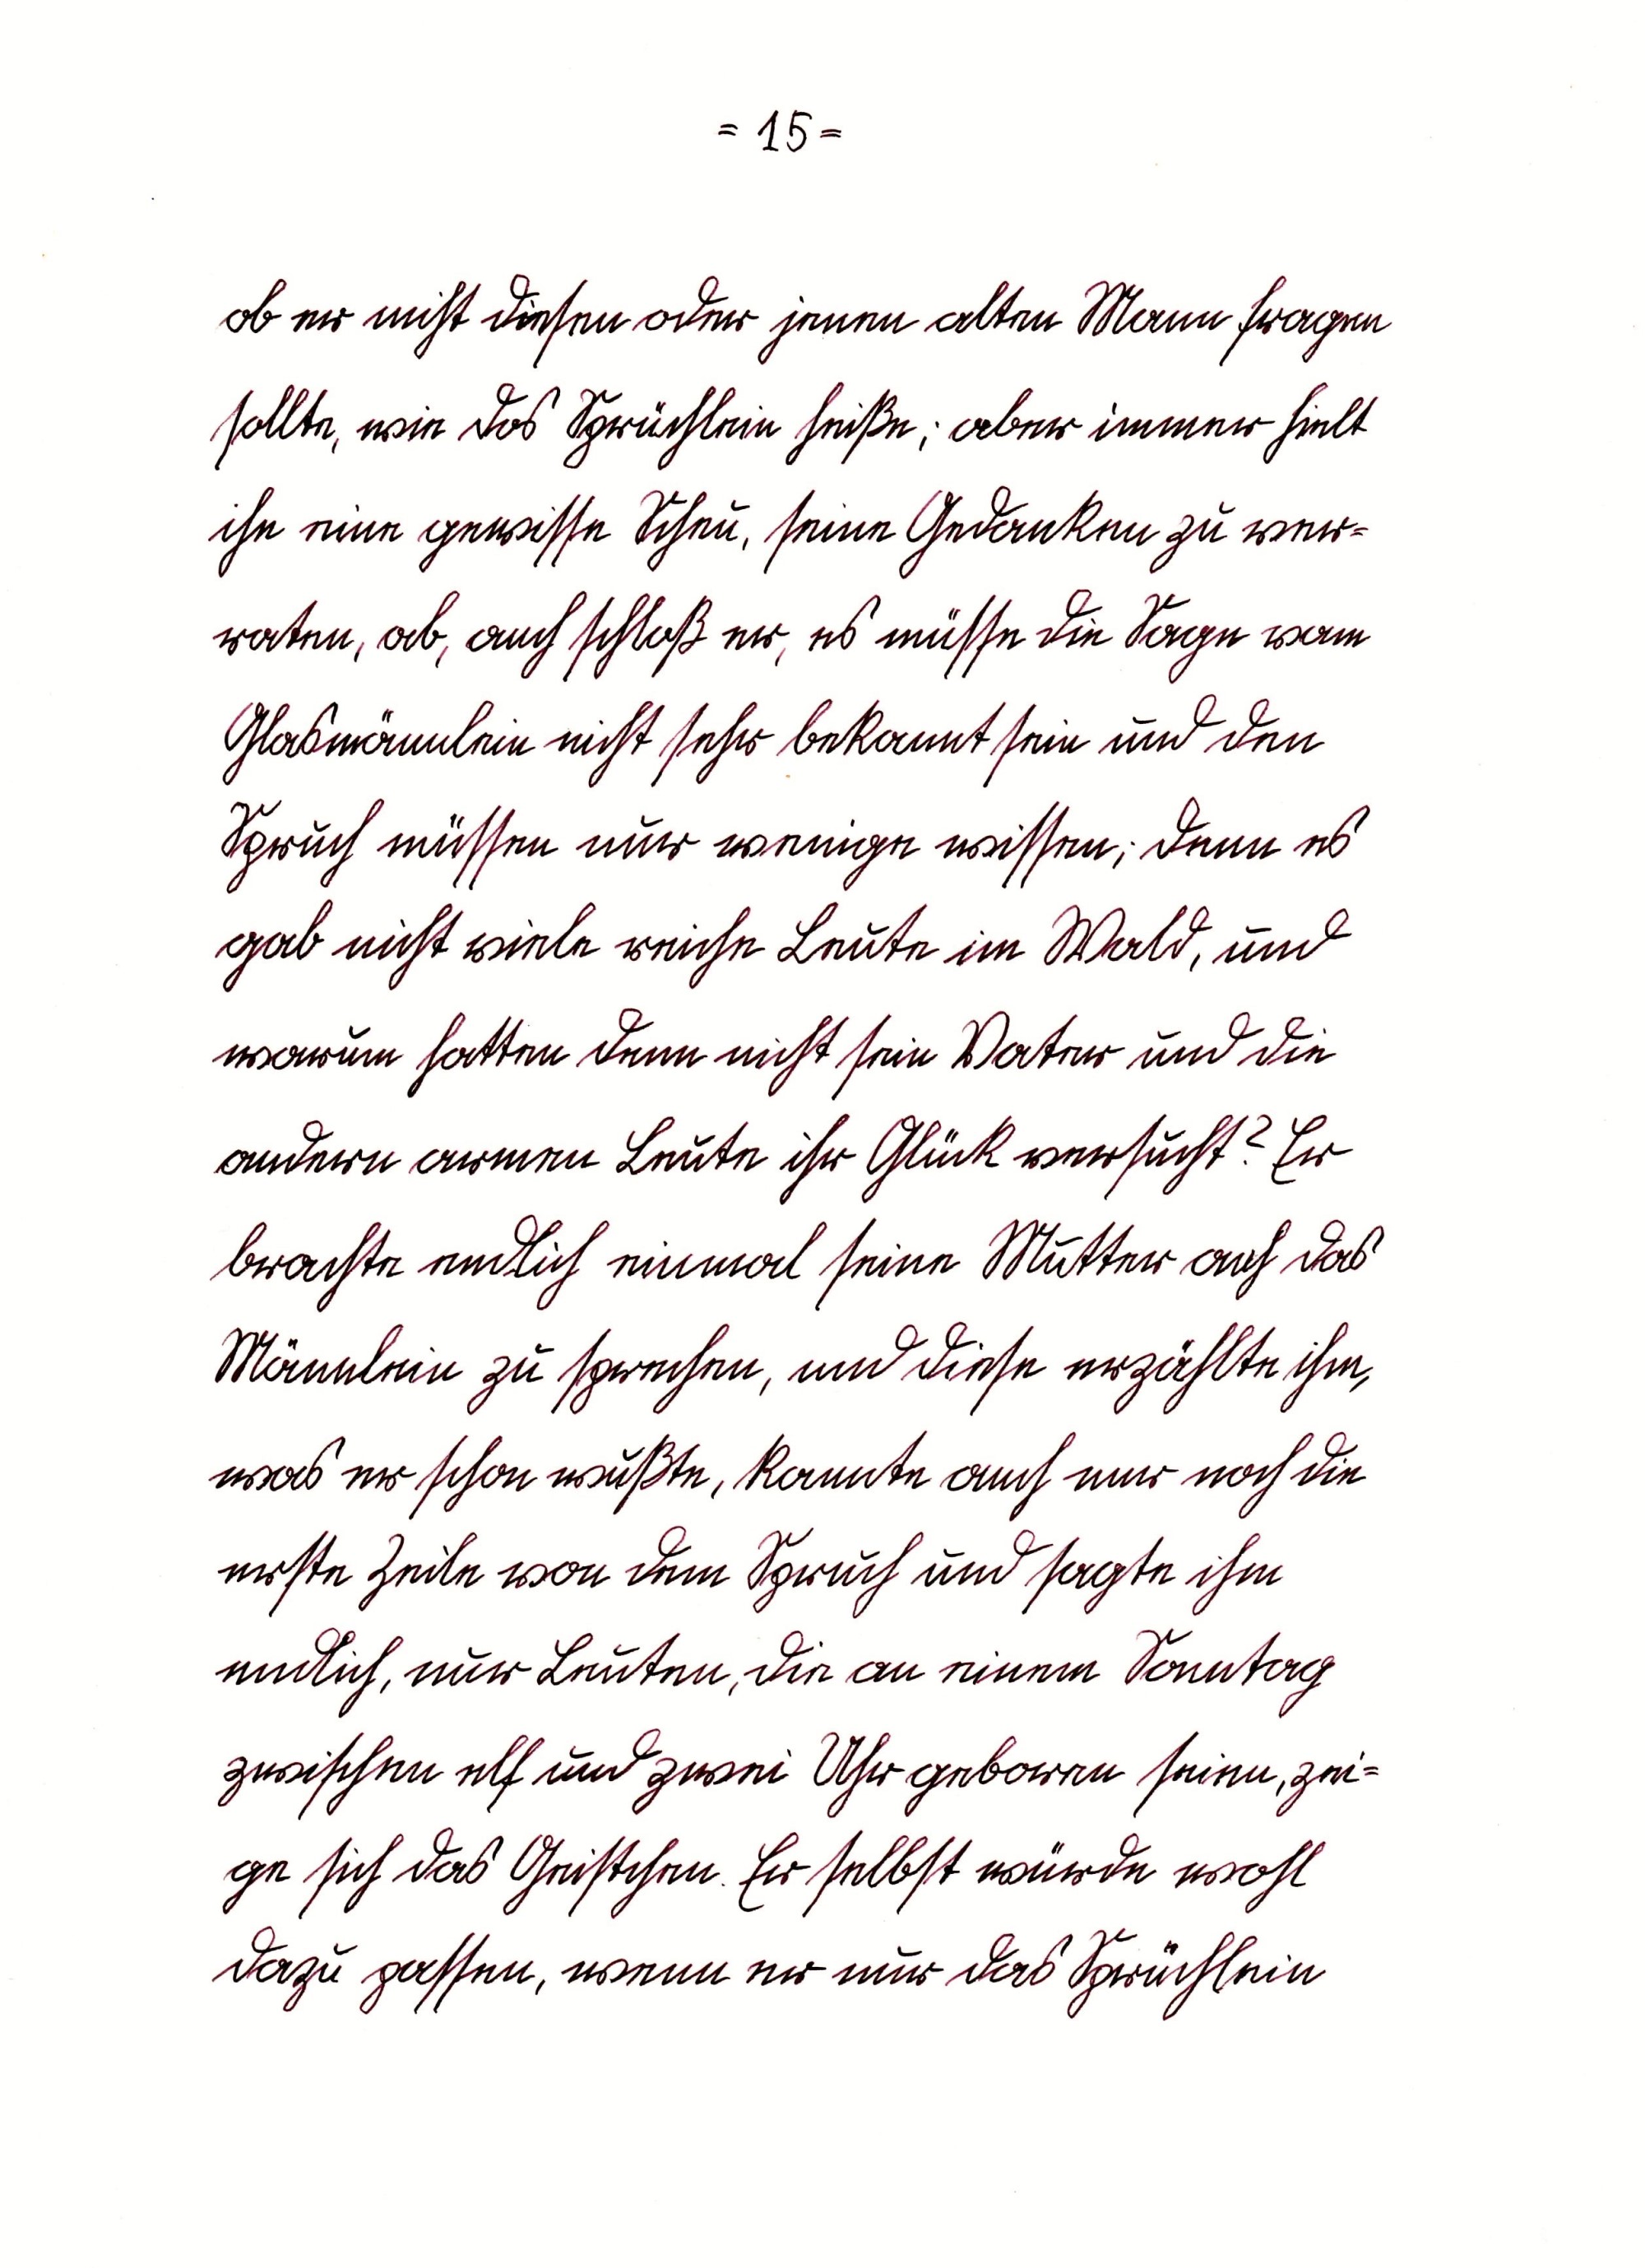 = 15 =
ob er nicht diesen oder jenen alten Mann fragen
sollte, wie das Sprüchlein heiße; aber immer hielt
ihn eine gewisse Scheu, seine Gedanken zu ver=
raten, ab, auch schloß er, es müsse die Sage vom
Glasmännlein nicht sehr bekannt sein und den
Spruch müssen nur wenige wissen; denn es
gab nicht viele reiche Leute im Wald, und
warum hatten denn nicht sein Vater und die
andern armen Leute ihr Glück versucht? Er
brachte endlich einmal seine Mutter auf das
Männlein zu sprechen, und diese erzählte ihm,
was er schon wußte, kannte auch nur noch die
erste Zeile von dem Spruch und sagte ihm
endlich, nur Leuten, die an einem Sonntag
zwischen elf und zwei Uhr geboren seien, zei=
ge sich das Geistchen. Er selbst würde wohl
dazu passen, wenn er nur das Sprüchlein